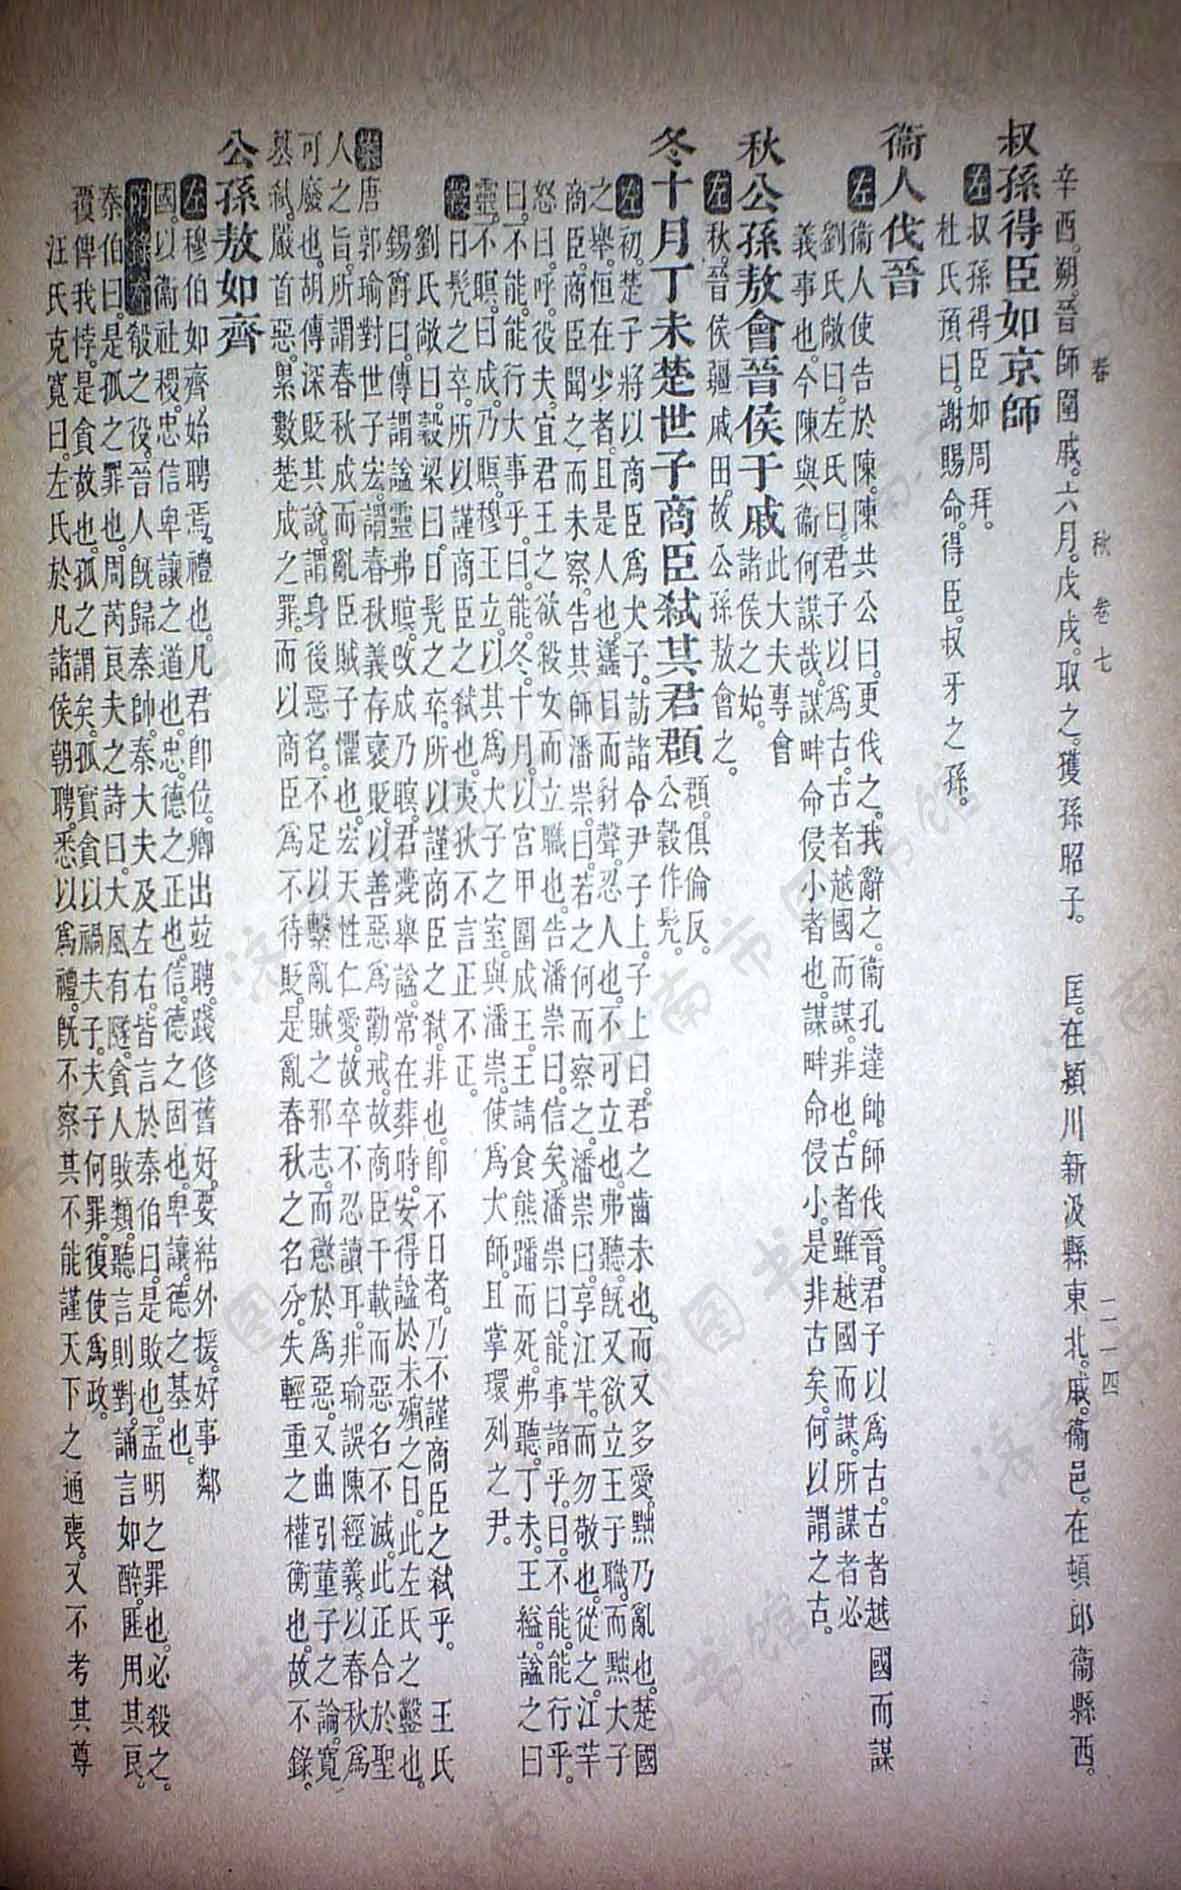 春 秋 卷七 二一四
辛酉。朔。晉師圍戚。六月。戊戌。取之。獲孫昭子。 匡。在潁川新汲縣東北。戚。衞邑。在頓邱衞縣西。
叔孫得臣如京師
左 叔孫得臣如周拜。
杜氏預曰。謝賜命。得臣。叔牙之孫。
衞人伐晉
左 衞人使告於陳。陳共公曰。更伐之。我辭之。衞孔達帥師伐晉。君子以爲古。古者越國而謀
劉氏敞曰。左氏曰。君子以爲古。古者越國而謀。非也。古者雖越國而謀。所謀者必
義事也。今陳與衞何謀哉。謀畔命侵小者也。謀畔命侵小。是非古矣。何以謂之古。
秋公孫敖會晉侯于戚 此大夫專會
諸侯之始。
左 秋。晉侯疆戚田。故公孫敖會之。
冬十月丁未楚世子商臣弑其君頵 頵。俱倫反。
公穀作髡。
左 初。楚子將以商臣爲大子。訪諸令尹子上。子上曰。君之齒未也。而又多愛。黜乃亂也。楚國
之舉。恒在少者。且是人也。蠭目而豺聲。忍人也。不可立也。弗聽。既又欲立王子職。而黜大子
商臣。商臣聞之。而未察。告其師潘崇曰。若之何而察之。潘崇曰。享江芊。而勿敬也。從之。江芊
怒曰。呼。役夫。宜君王之欲殺女而立職也。告潘崇曰。信矣。潘崇曰。能事諸乎。曰。不能。能行乎。
曰。不能。能行大事乎。曰。能。冬。十月。以宮甲圍成王。王請食熊蹯而死。弗聽。丁未。王縊。謚之曰
靈。不瞑。曰成。乃瞑。穆王立。以其爲大子之室與潘崇。使爲大師。且掌環列之尹。
穀 日髡之卒。所以謹商臣之弑也。夷狄不言正不正。
劉氏敞曰。穀梁曰。日髡之卒。所以謹商臣之弑。非也。卽不日者。乃不謹商臣之弑乎。 王氏
錫爵曰。傳謂謚靈弗瞑。改成乃瞑。君薨舉謚。常在葬時。安得謚於未殯之日。此左氏之鑿也。
案 唐郭瑜對世子宏。謂春秋義存褒貶。以善惡爲勸戒。故商臣千載而惡名不滅。此正合於聖
人之旨。所謂春秋成而亂臣賊子懼也。宏天性仁愛。故卒不忍讀耳。非瑜誤陳經義。以春秋爲
可廢也。胡傳深貶其說。謂身後惡名。不足以繫亂賊之邪志。而懲於爲惡。又曲引董子之論。寬
棊弑。嚴首惡。累數楚成之罪。而以商臣爲不待貶。是亂春秋之名分。失輕重之權衡也。故不錄。
公孫敖如齊
左 穆伯如齊。始聘焉。禮也。凡君卽位。卿出竝聘。踐修舊好。要結外援。好事鄰
國。以衞社稷。忠信卑讓之道也。忠。德之正也。信。德之固也。卑讓。德之基也。
附錄左 殽之役。晉人既歸秦帥。秦大夫及左右。皆言於秦伯曰。是敗也。孟明之罪也。必殺之。
秦伯曰。是孤之罪也。周芮良夫之詩曰。大風有隧。貪人敗類。聽言則對。誦言如醉。匪用其良。
覆俾我悖。是貪故也。孤之謂矣。孤實貪以禍夫子。夫子何罪。復使爲政。
汪氏克寬曰。左氏於凡諸侯朝聘。悉以爲禮。既不察其不能謹天下之通喪。又不考其尊